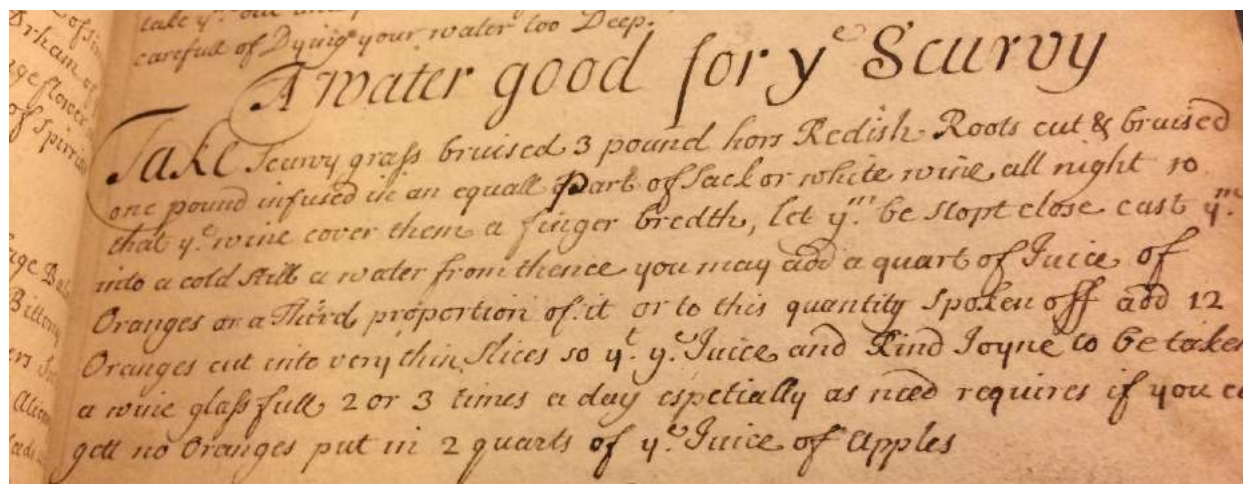 take yᵐ out and
carefull of Dying your water too Deep.
A water good for yᵉ Scurvy
Take Scurvy grass bruised 3 pound hors Redish Roots cut & bruised
one pound infused in an equall Part of Sack or white wine all night so
that yᵉ wine cover them a finger bredth, let yᵐ be stopt close cast yᵐ
into a cold still a water from thence you may add a quart of Juice of
Oranges or a Third proportion of it or to this quantity Spoken off add 12
Oranges cut into very thin Slices so yᵗ yᵉ Juice and Rind Joyne to be taken
a wine glass full 2 or 3 times a day espetially as need requires if you
gett no Oranges put in 2 quarts of yᵉ Juice of apples
flower
of Spirrits
Bittony